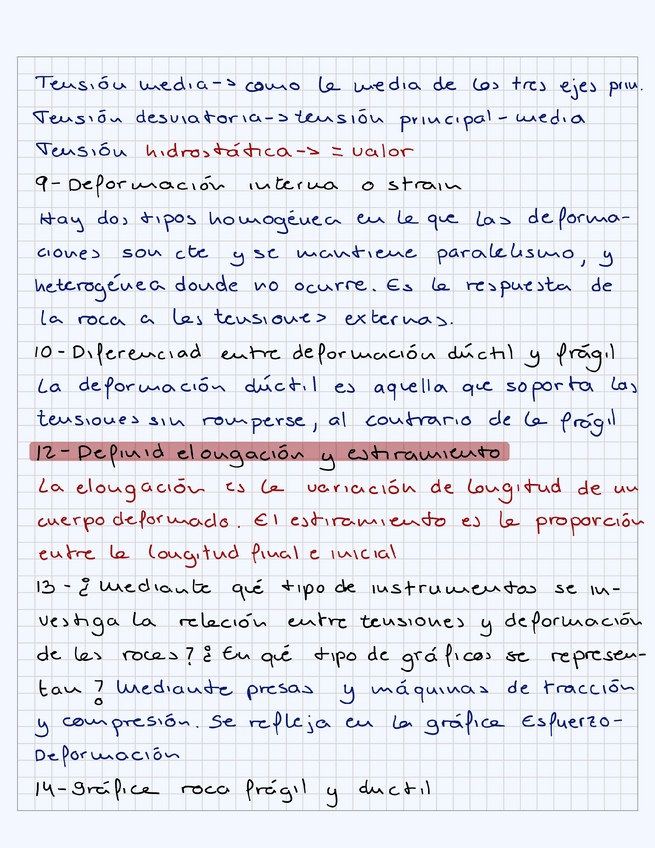 Tensión media -> como la media de los tres ejes prin.
Tensión desviatoria -> tensión principal - media
Tensión hidrostática -> = valor
9- Deformación interna o strain
Hay dos tipos homogénea en la que las deforma-
ciones son cte y se mantiene paralelismo, y
heterogénea donde no ocurre. Es la respuesta de
la roca a las tensiones externas.
10- Diferenciad entre deformación dúctil y frágil
La deformación dúctil es aquella que soporta las
tensiones sin romperse, al contrario de la frágil
12- Definid elongación y estiramiento
La elongación es la variación de longitud de un
cuerpo deformado. El estiramiento es la proporción
entre la longitud final e inicial
13 - ¿Mediante qué tipo de instrumentos se in-
vestiga la relación entre tensiones y deformación
de las rocas? ¿En qué tipo de gráficos se represen-
tan? Mediante presas y máquinas de tracción
y compresión. Se refleja en la gráfica Esfuerzo-
Deformación
14- Gráfica roca frágil y ductil